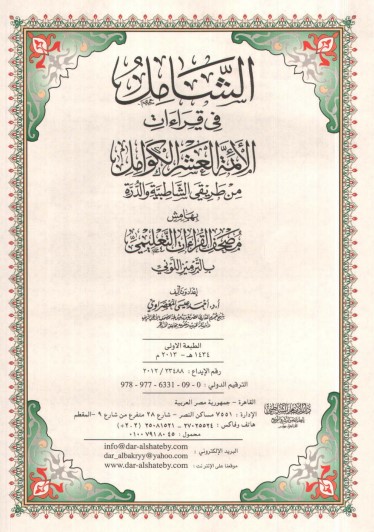 الشَّامِلُ
فِى قِرَاءَاتِ
الأَئِمَّةِ العَشْرِ الكَوَامِلِ
مِنْ طَرِيقَىِ الشَّاطِبِيَّةِ وَالدُّرَّةِ
بِهَامِشِ
مُصْحَفِ القِرَاءَاتِ التَّعْلِيمِىِّ
بِالتَّرْمِيزِ اللَّوْنِىِّ
إعداد وتأليف
أ.د/ أحمد عيسى المعصراوى
الطبعة الأولى
١٤٣٤ هـ - ٢٠١٣ م
رقم الإيداع : ٢٣٤٨٨ / ٢٠١٢
الترقيم الدولى : 0 - 09 - 6331 - 977 - 978
القاهرة - جمهورية مصر العربية
الإدارة : ٧٥٥١ مساكن النصر - شارع ٢٨ متفرع من شارع ٩ - المقطم
هاتف وفاكس : ٢٧٠٢٥٥٢٤ - ٢٥٠٨١٥٢١ (٢٠٢+)
محمول : ٠١٠٠٧٩١٨٠٤٥
البريد الإلكترونى : info@dar-alshateby.com
dar_albakryy@yahoo.com
موقعنا على الإنترنت : www.dar-alshateby.com